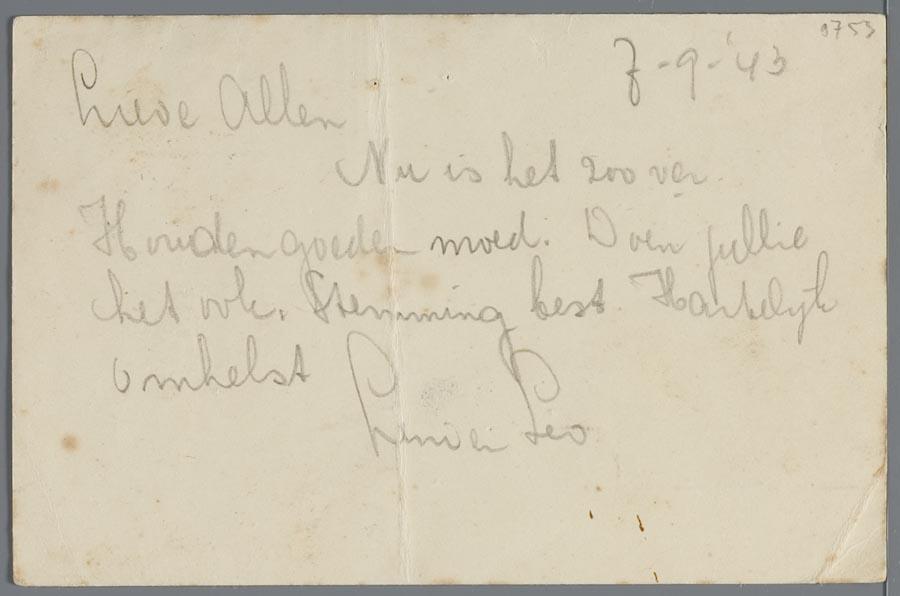 0753
7-9-'43
Lieve Allen
Nu is het zoo ver.
Houden goeden moed. Doen jullie
het ook. Stemming best. Hartelijk
omhelst
Leo